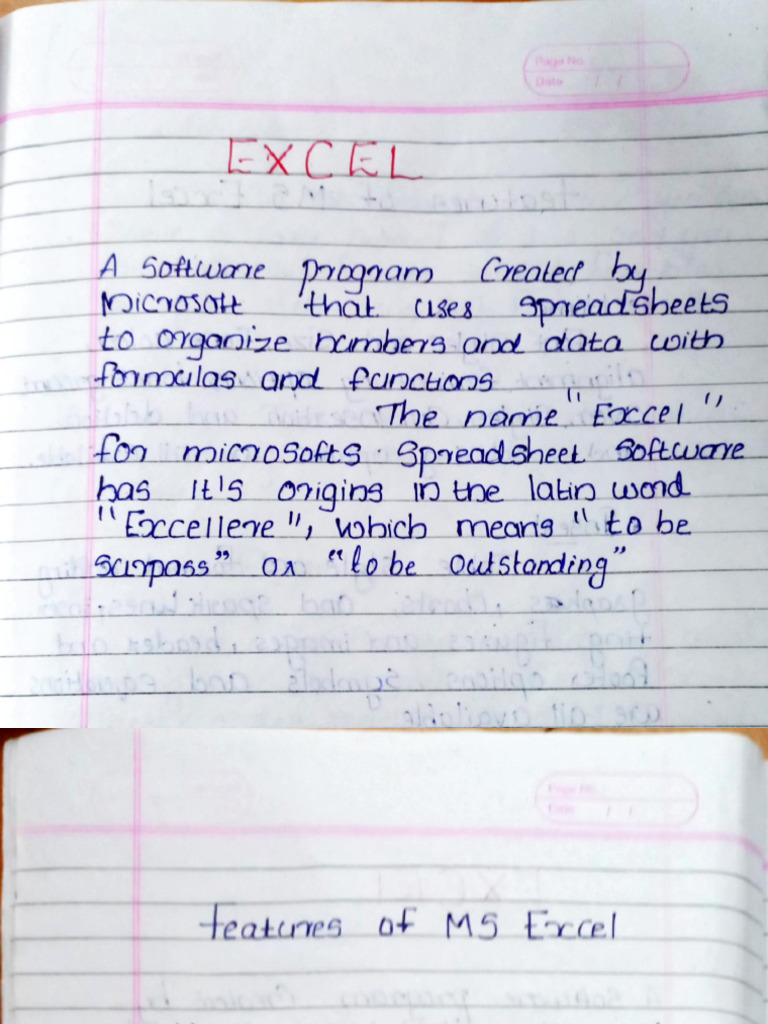 Page No.
Date / /
EXCEL
A software program Created by
Microsoft that uses spreadsheets
to organize numbers and data with
formulas and functions
The name "Excel"
for microsofts Spreadsheet Software
has It's origins in the latin word
"Excellere", which means "to be
surpass" or "to be outstanding"
Page No.
Date / /
features of MS Excel